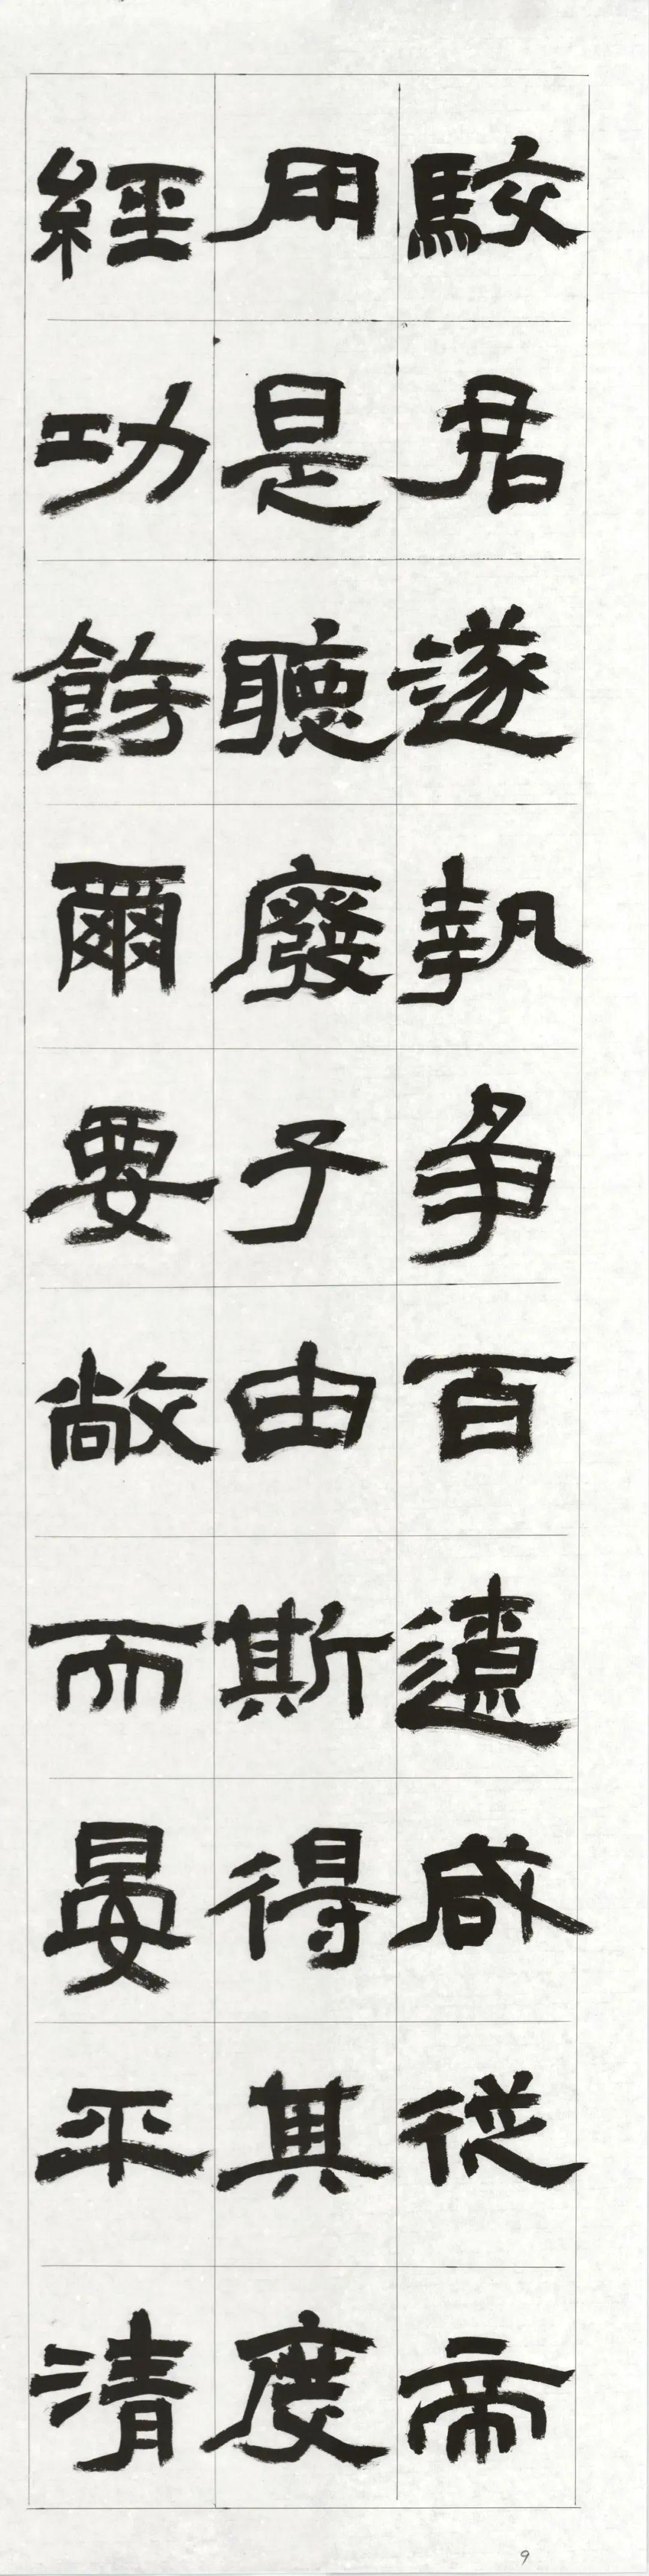 駮君遂執爭百遼咸從帝
用是聽廢子由斯得其度
經功飭爾要敞而晏平清
9